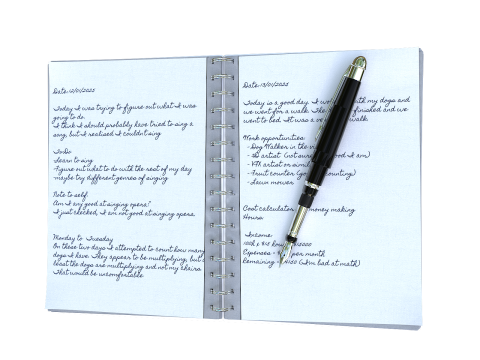 Date: 12/01/2022
Today I was trying to figure out what I was
going to do.
I think I should probably have tried to sing a
song, but I realised I couldn't sing
ToDo
-Learn to sing
-Figure out what to do with the rest of my day
maybe try different genres of singing
Note to self:
Am I any good at singing opera?
I just checked, I am not good at singing opera.
Monday to Tuesday
On these two days I attempted to count how many
dogs I have. They appear to be multiplying, but
least the dogs are multiplying and not my chairs
That would be uncomfortable.
Date: 13/01/2022
Today is a good day. I with my dogs and
we went for a walk. The finished and we
went to bed. It was a walk
Work opportunities:
- Dog Walker in the
- 3D artist (not sure good I am)
- VFX artist on
- Fruit counter (good counting)
- Lawn mower
Cost calculator money making
Hours:
Income:
Expenses - per month
Remaining - (I'm bad at math)